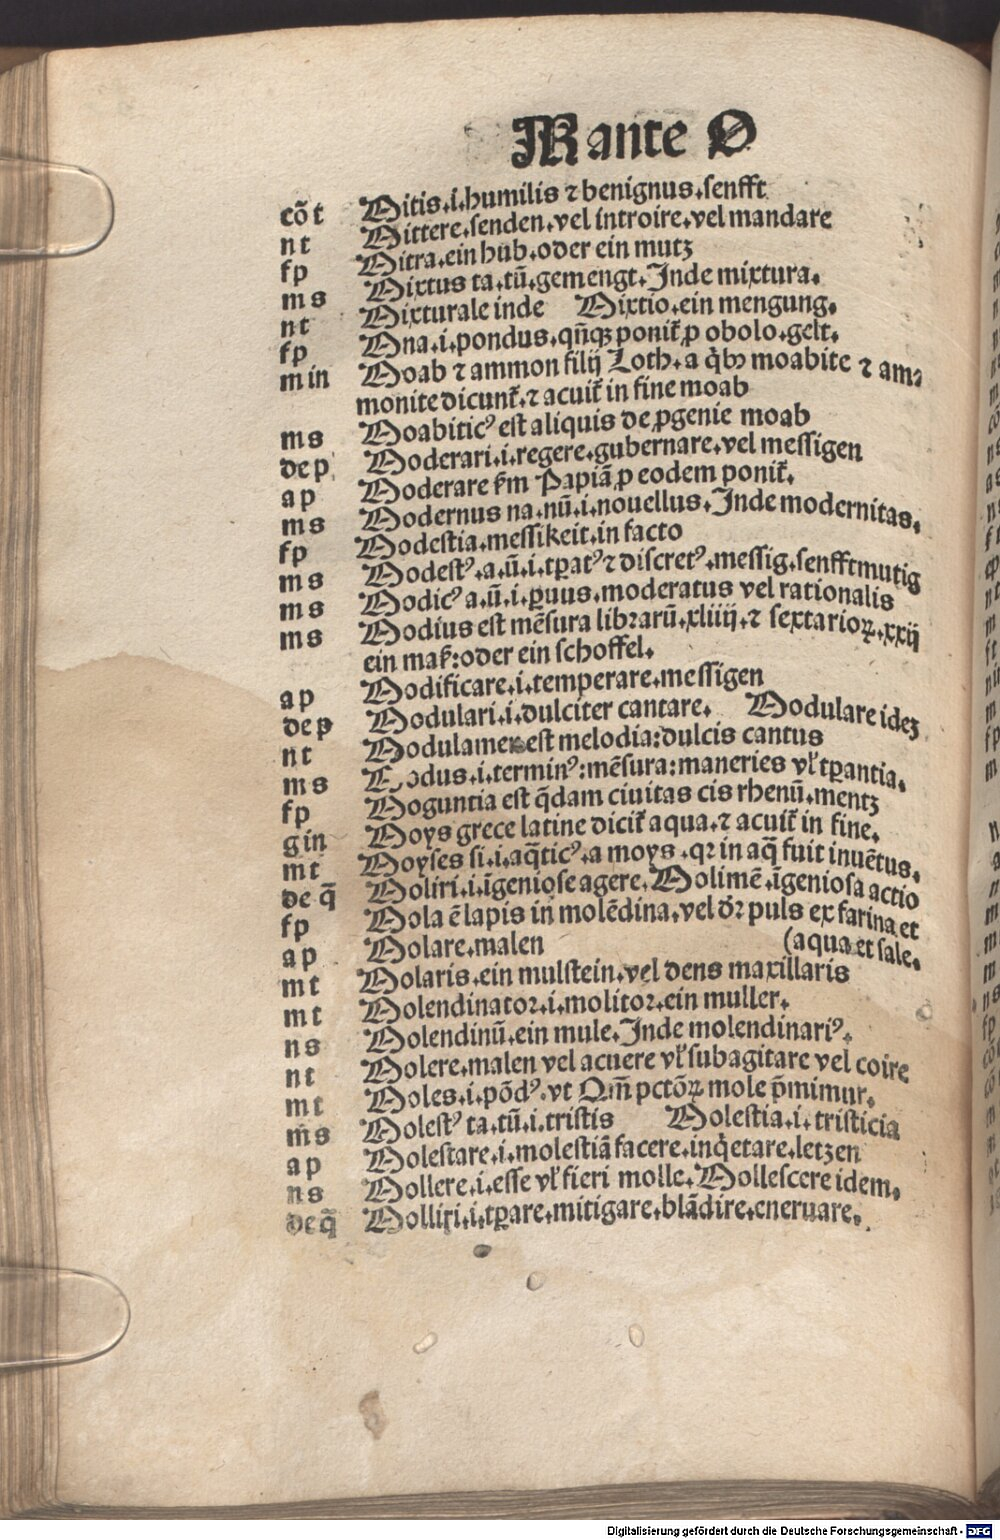 M ante O
cõ t Mitis.i.humilis ⁊ benignus.senfft
n t Mittere.senden.vel introire.vel mandare
f p Mitra.ein hub.oder ein mutz
m s Mixtus ta.tū.gemengt.Inde mixtura.
n t Mixturale inde Mixtio.ein mengung.
f p Mna.i.pondus.qñqꝫ poniť ꝓ obolo.gelt.
m in Moab ⁊ ammon filij Loth.a q̄bꝰ moabite ⁊ am⸗
monite dicunť.⁊ acuiť in fine moab
m s Moabiticꝰ est aliquis de ꝓgenie moab
de p Moderari.i.regere.gubernare.vel messigen
a p Moderare ẜm Papiā ꝓ eodem poniť.
m s Modernus na.nū.i.nouellus.Inde modernitas.
f p Modestia.messikeit.in facto
m s Modestꝰ.a.ū.i.tꝑatꝰ ⁊ discretꝰ.messig.senfftmutig
m s Modicꝰ a.ū.i.ꝑuus.moderatus vel rationalis
m s Modius est mēsura librarū.xliiij.⁊ sextarioꝝ.xxij
ein maß:oder ein schoffel.
a p Modificare.i.temperare.messigen
de p Modulari.i.dulciter cantare. Modulare ideꝫ
n t Modulamen est melodia:dulcis cantus
m s Modus.i.terminꝰ:mēsura:maneries vľ tꝑantia.
f p Moguntia est q̄dam ciuitas cis rhenū.mentz
g in Moys grece latine diciť aqua.⁊ acuiť in fine.
m t Moyses si.i.aq̄ticꝰ.a moys.qꝛ in aq̄ fuit inuētus.
de q̄ Moliri.i.īgeniose agere.Molimē.īgeniosa actio
f p Mola ē lapis in molēdina.vel dꝛ puls ex farina et
a p Molare.malen (aqua et sale.
m t Molaris.ein mulstein.vel dens maxillaris
m t Molendinator.i.molitor.ein muller.
n s Molendinū.ein mule.Inde molendinariꝰ.
n t Molere.malen vel acuere vľ subagitare vel coire
m t Moles.i.põdꝰ.vt Qm̄ pctõꝝ mole p̄mimur.
m s Molestꝰ ta.tū.i.tristis Molestia.i.tristicia
a p Molestare.i.molestiā facere.inq̇etare.letzen
n s Mollere.i.esse vľ fieri molle.Mollescere idem.
de q̄ Molliri.i.tꝑare.mitigare.blādire.eneruare.
Digitalisierung gefördert durch die Deutsche Forschungsgemeinschaft - DFG